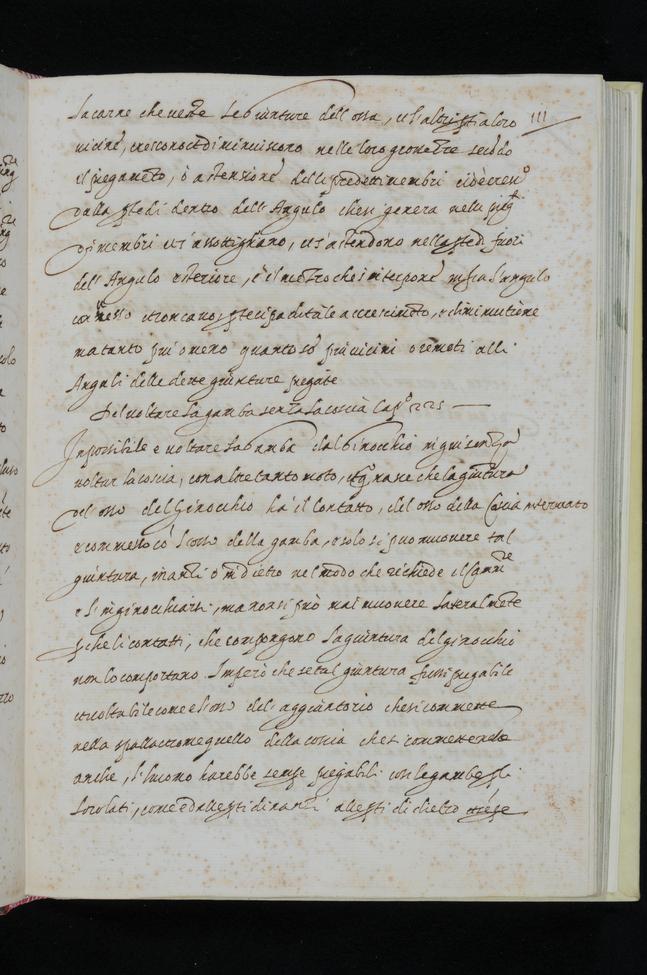 la carne che veste le giunture dell'ossa, et l'altre parti a loro 111
vicine, crescono et diminuiscono nelle loro grossezze secondo
il piegamento, ò astensione delli predetti membri cioè cresceno
dalla parte di dentro dell'Angulo che si genera nelle pieg.ti
di membri et s'assottigliano, et s'astendono nella parte di fuori
dell'Angulo esteriore, e il mezzo che s'interpone infra l'angulo
connesso et concavo, participa di tale accrescimento, o diminutione
ma tanto più o meno quanto sò più vicini o remoti alli
Anguli delle dette giunture piegate
Del voltare la gamba senza la coscia Cap.o 225
Impossibile e voltare la Gamba dal Ginocchio in giù senza
voltar la coscia, con altretanto moto, et q.o nasce che la giuntura
del osso del Ginocchio ha il contatto, del osso della Coscia internato
e commesso cò l'osso della gamba, e solo si può muovere tal
giuntura, inanzi o indietro nel modo che richiede il Camin.re
e l'inginocchiarsi, ma non si può mai muovere lateralmente
perche li contatti, che compongono la giuntura del ginocchio
non lo comportano. Imperò che se tal giuntura fussi piegabile
et voltabile come e l'osso del aggiuntorio che si commette
nella spalla et come quello della coscia che si commette nelle
anche, l'huomo harebbe sempre piegabili con le gambe per li
loro lati, come dalle parti dinanzi alle parti di dietro